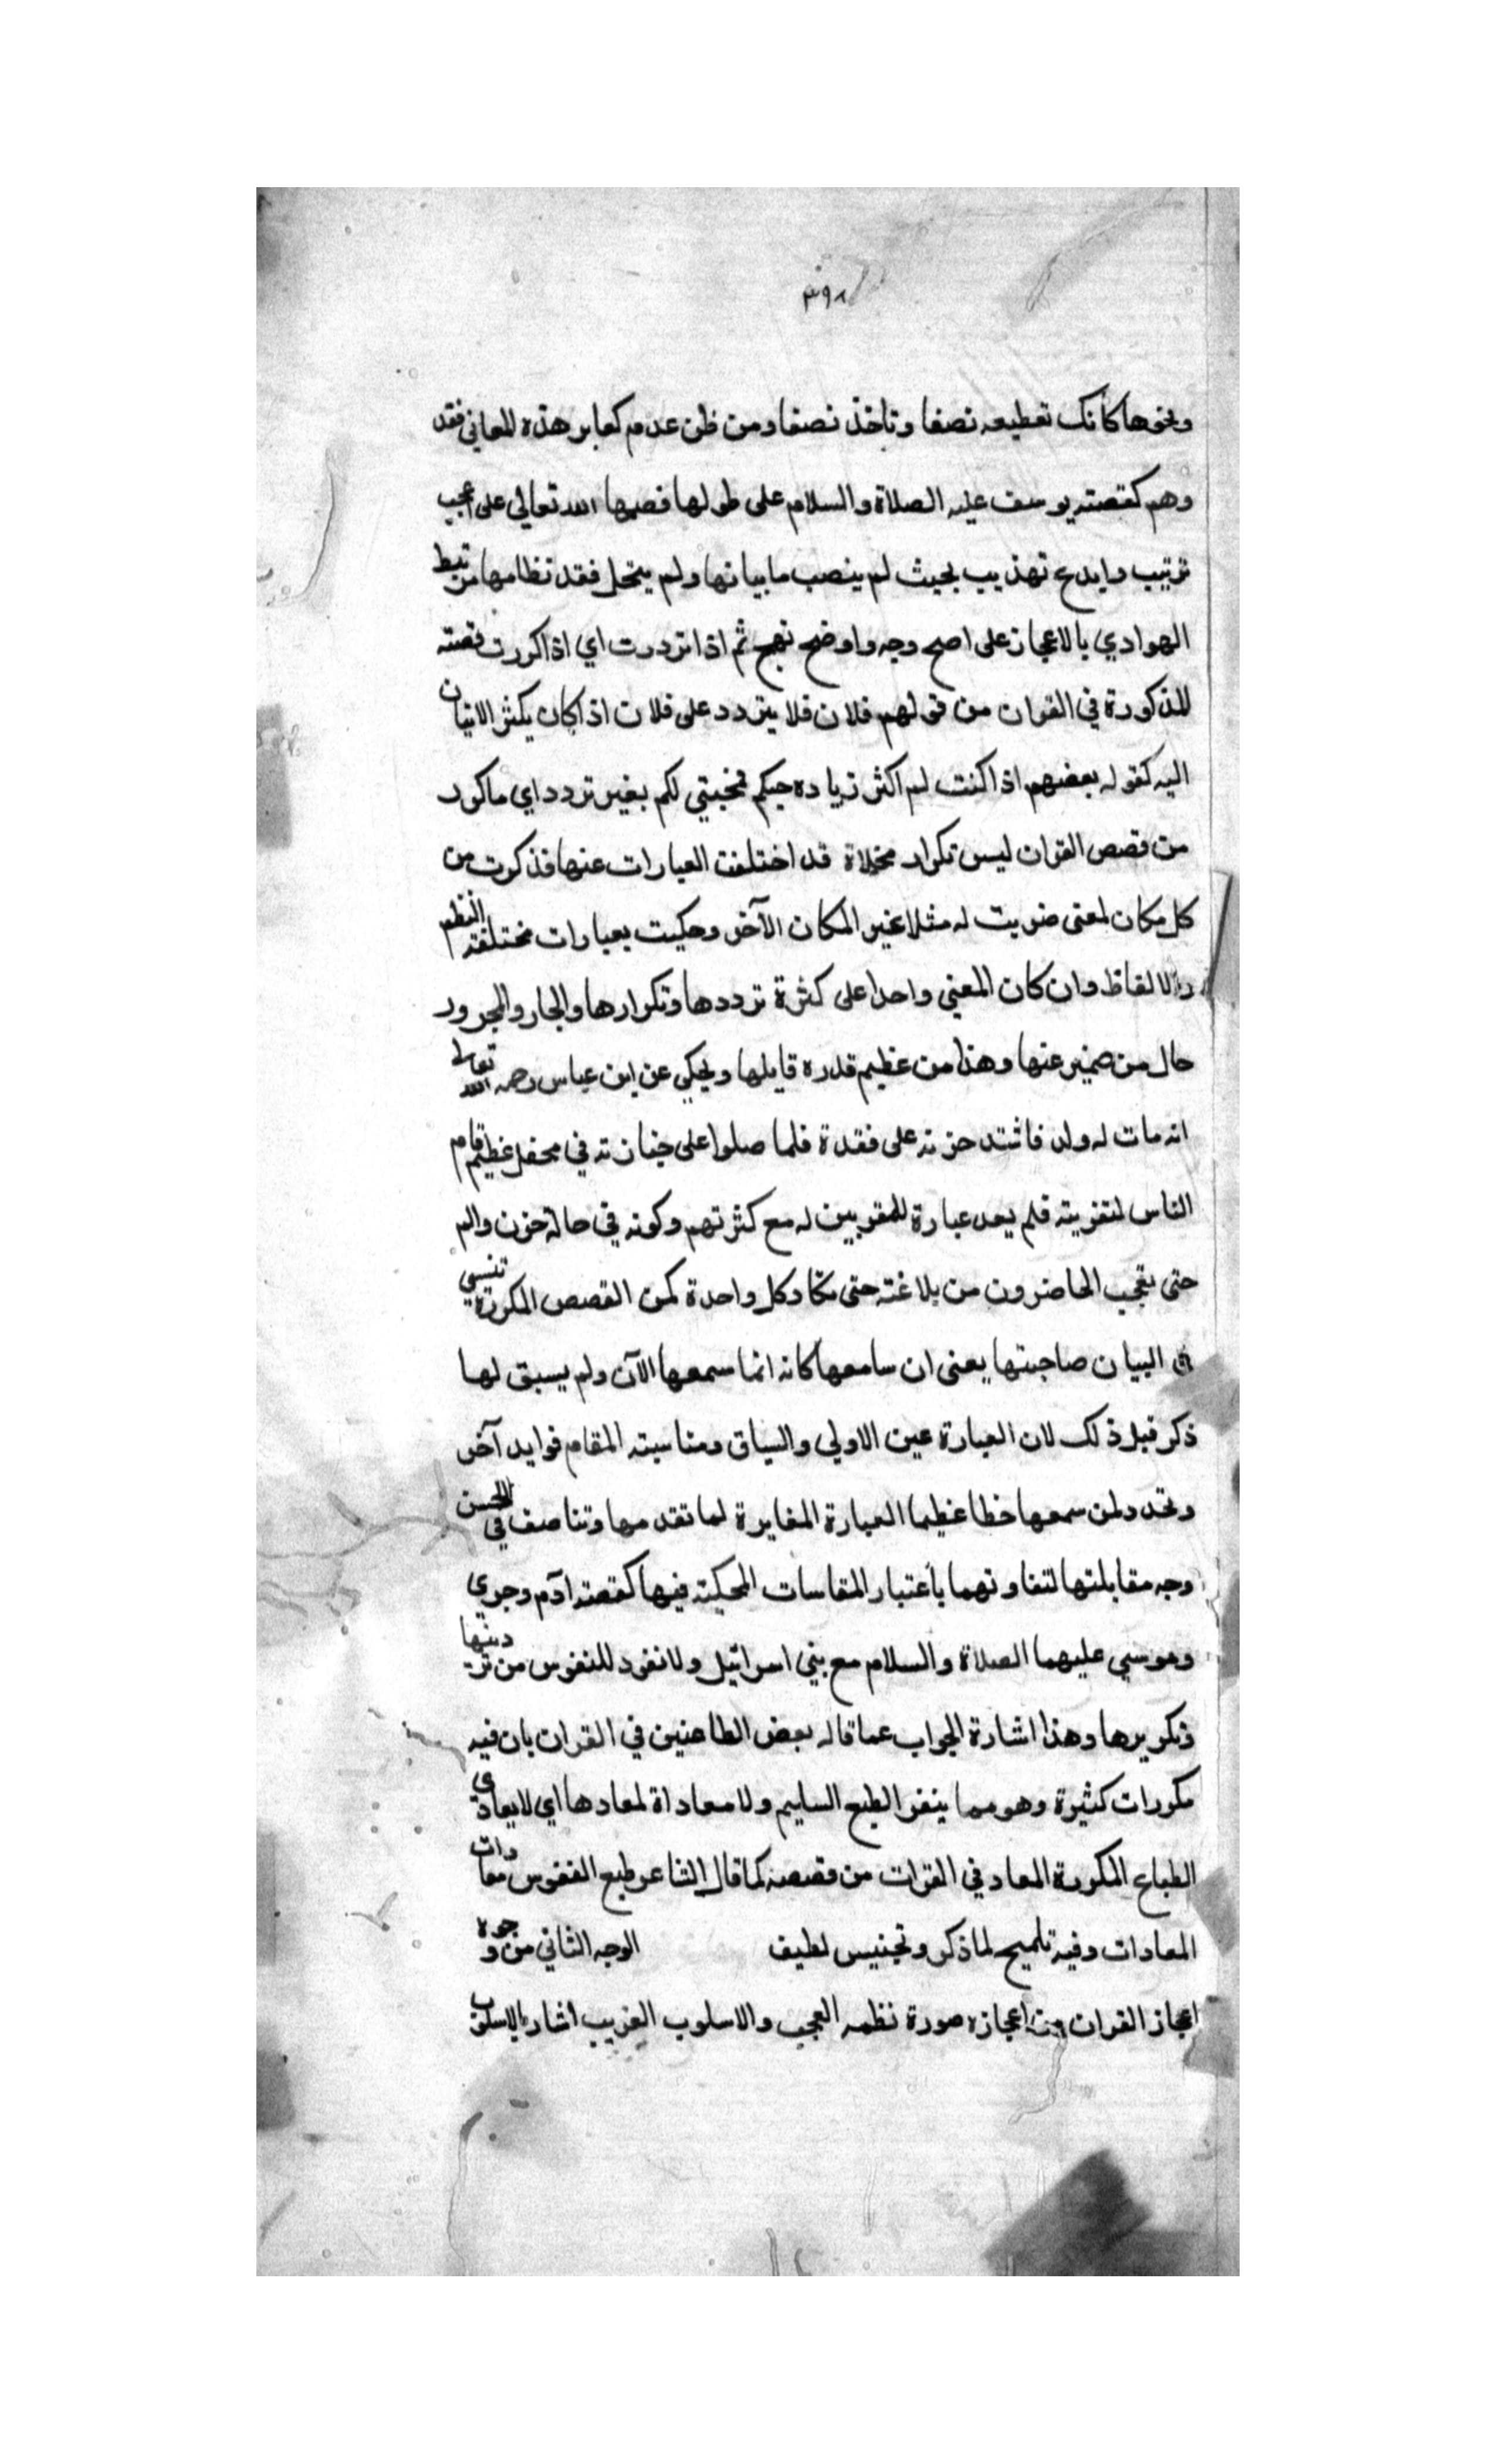 ٣٩٨
ونحوها كانك تعطيه نصفا وتاخذ نصفا ومن ظن عدم هذه المعاني فقد
وهم كقصته يوسف عليه الصلاة والسلام على طولها فصها الله تعالى على اعجب
ترتيب وابدع تهذيب بحيث لم ينصب ما بيانها ولم ينحل فقد نظامها مرتبط
الهوادي بالاعجاز على اصح وجه واوضح نهج ثم اذا تردرت اي اذا كررت قصته
المذكورة في القران من قولهم فلان فلا يتردد على فلان اذا كان يكثر الاتيان
اليه كقوله بعضهم اذا كنت لم اكثر زياده حبكم فمحبتي لكم بغير تردد اي ما كرر
من قصص القران ليس تكرار مخلاة قد اختلفت العبارات عنها فذكرت من
كل مكان لمعنى ضربت له مثلا غير المكان الآخر وحكيت بعبارات مختلفة النظم
والالفاظ وان كان المعني واحدا على كثرة ترددها وتكرارها والجار والمجرور
حال من ضمير عنها وهذا من عظيم قدره قايلها ويحكي عن ابن عباس رحمه الله تعالى
انه مات له ولد فاشتد حزنه على فقدة فلما صلوا على جنازته في محفل عظيم قام
الناس لتعزيته فلم يعد عبارة للمقربين له مع كثرتهم وكونه في حالة حزن والم
حتى تعجب الحاضرون من بلاغته حتى تكاد كل واحدة كمن القصص المكررة تنسي
في البيان صاحبتها يعنى ان سامعها كانه انما سمعها الآن ولم يسبق لها
ذكر قبل ذلك لان العبارة عين الاولي والسياق ومناسبته المقام فوايد آخر
وتجدد لمن سمعها خطا عظيما العبارة المغايرة لما تقدمها وتناصف في الحسن
وجه مقابلتها لتفاوتهما باعتبار المقاسات المحكيته فيها كقصته ادم وجري
وموسي عليهما الصلاة والسلام مع بني اسرائيل ولا نفور للنفوس من ترديدها
وتكريرها وهذا اشارة الجواب عما قاله بعض الطاعنين في القران بان فيه
مكررات كثيرة وهو مما ينفر الطبع السليم ولا معاداة لمعادها اي لا يعادي
الطباع المكررة المعاد في القران من قصصه كما قال الشاعر طبع النفوس معادات
المعادات وفيه تلميح لما ذكر وتجنيس لطيف الوجه الثاني من وجوه
اعجاز القران من اعجازه صورة نظمه العجب والاسلوب الغريب اشار بالاسلوب